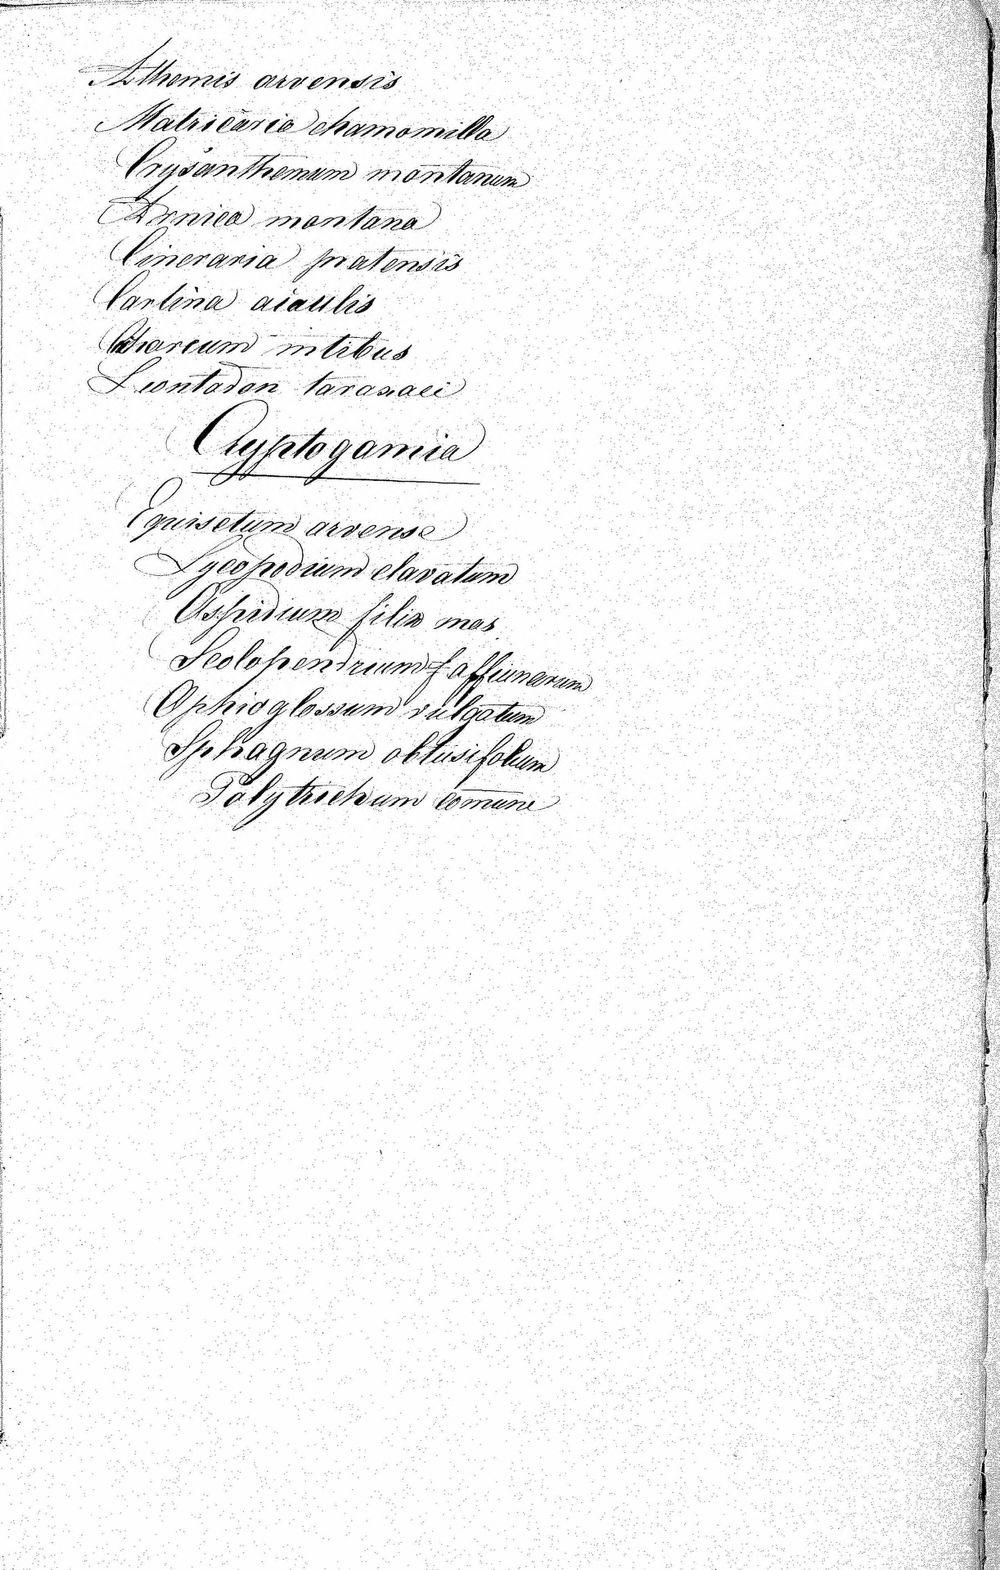 Athemis arvensis
Matricaria chamomilla
Crysanthemum montanum
Arnica montana
Cineraria pratensis
Carlina acaulis
intibus
Leontodon taraxaci
Cryptogamia
Equisetum arvense
Lycopodium clavatum
Aspidium filix mas
Scolopendrium
Ophioglossum vulgatum
Sphagnum obtusifolium
Polytrichum comune